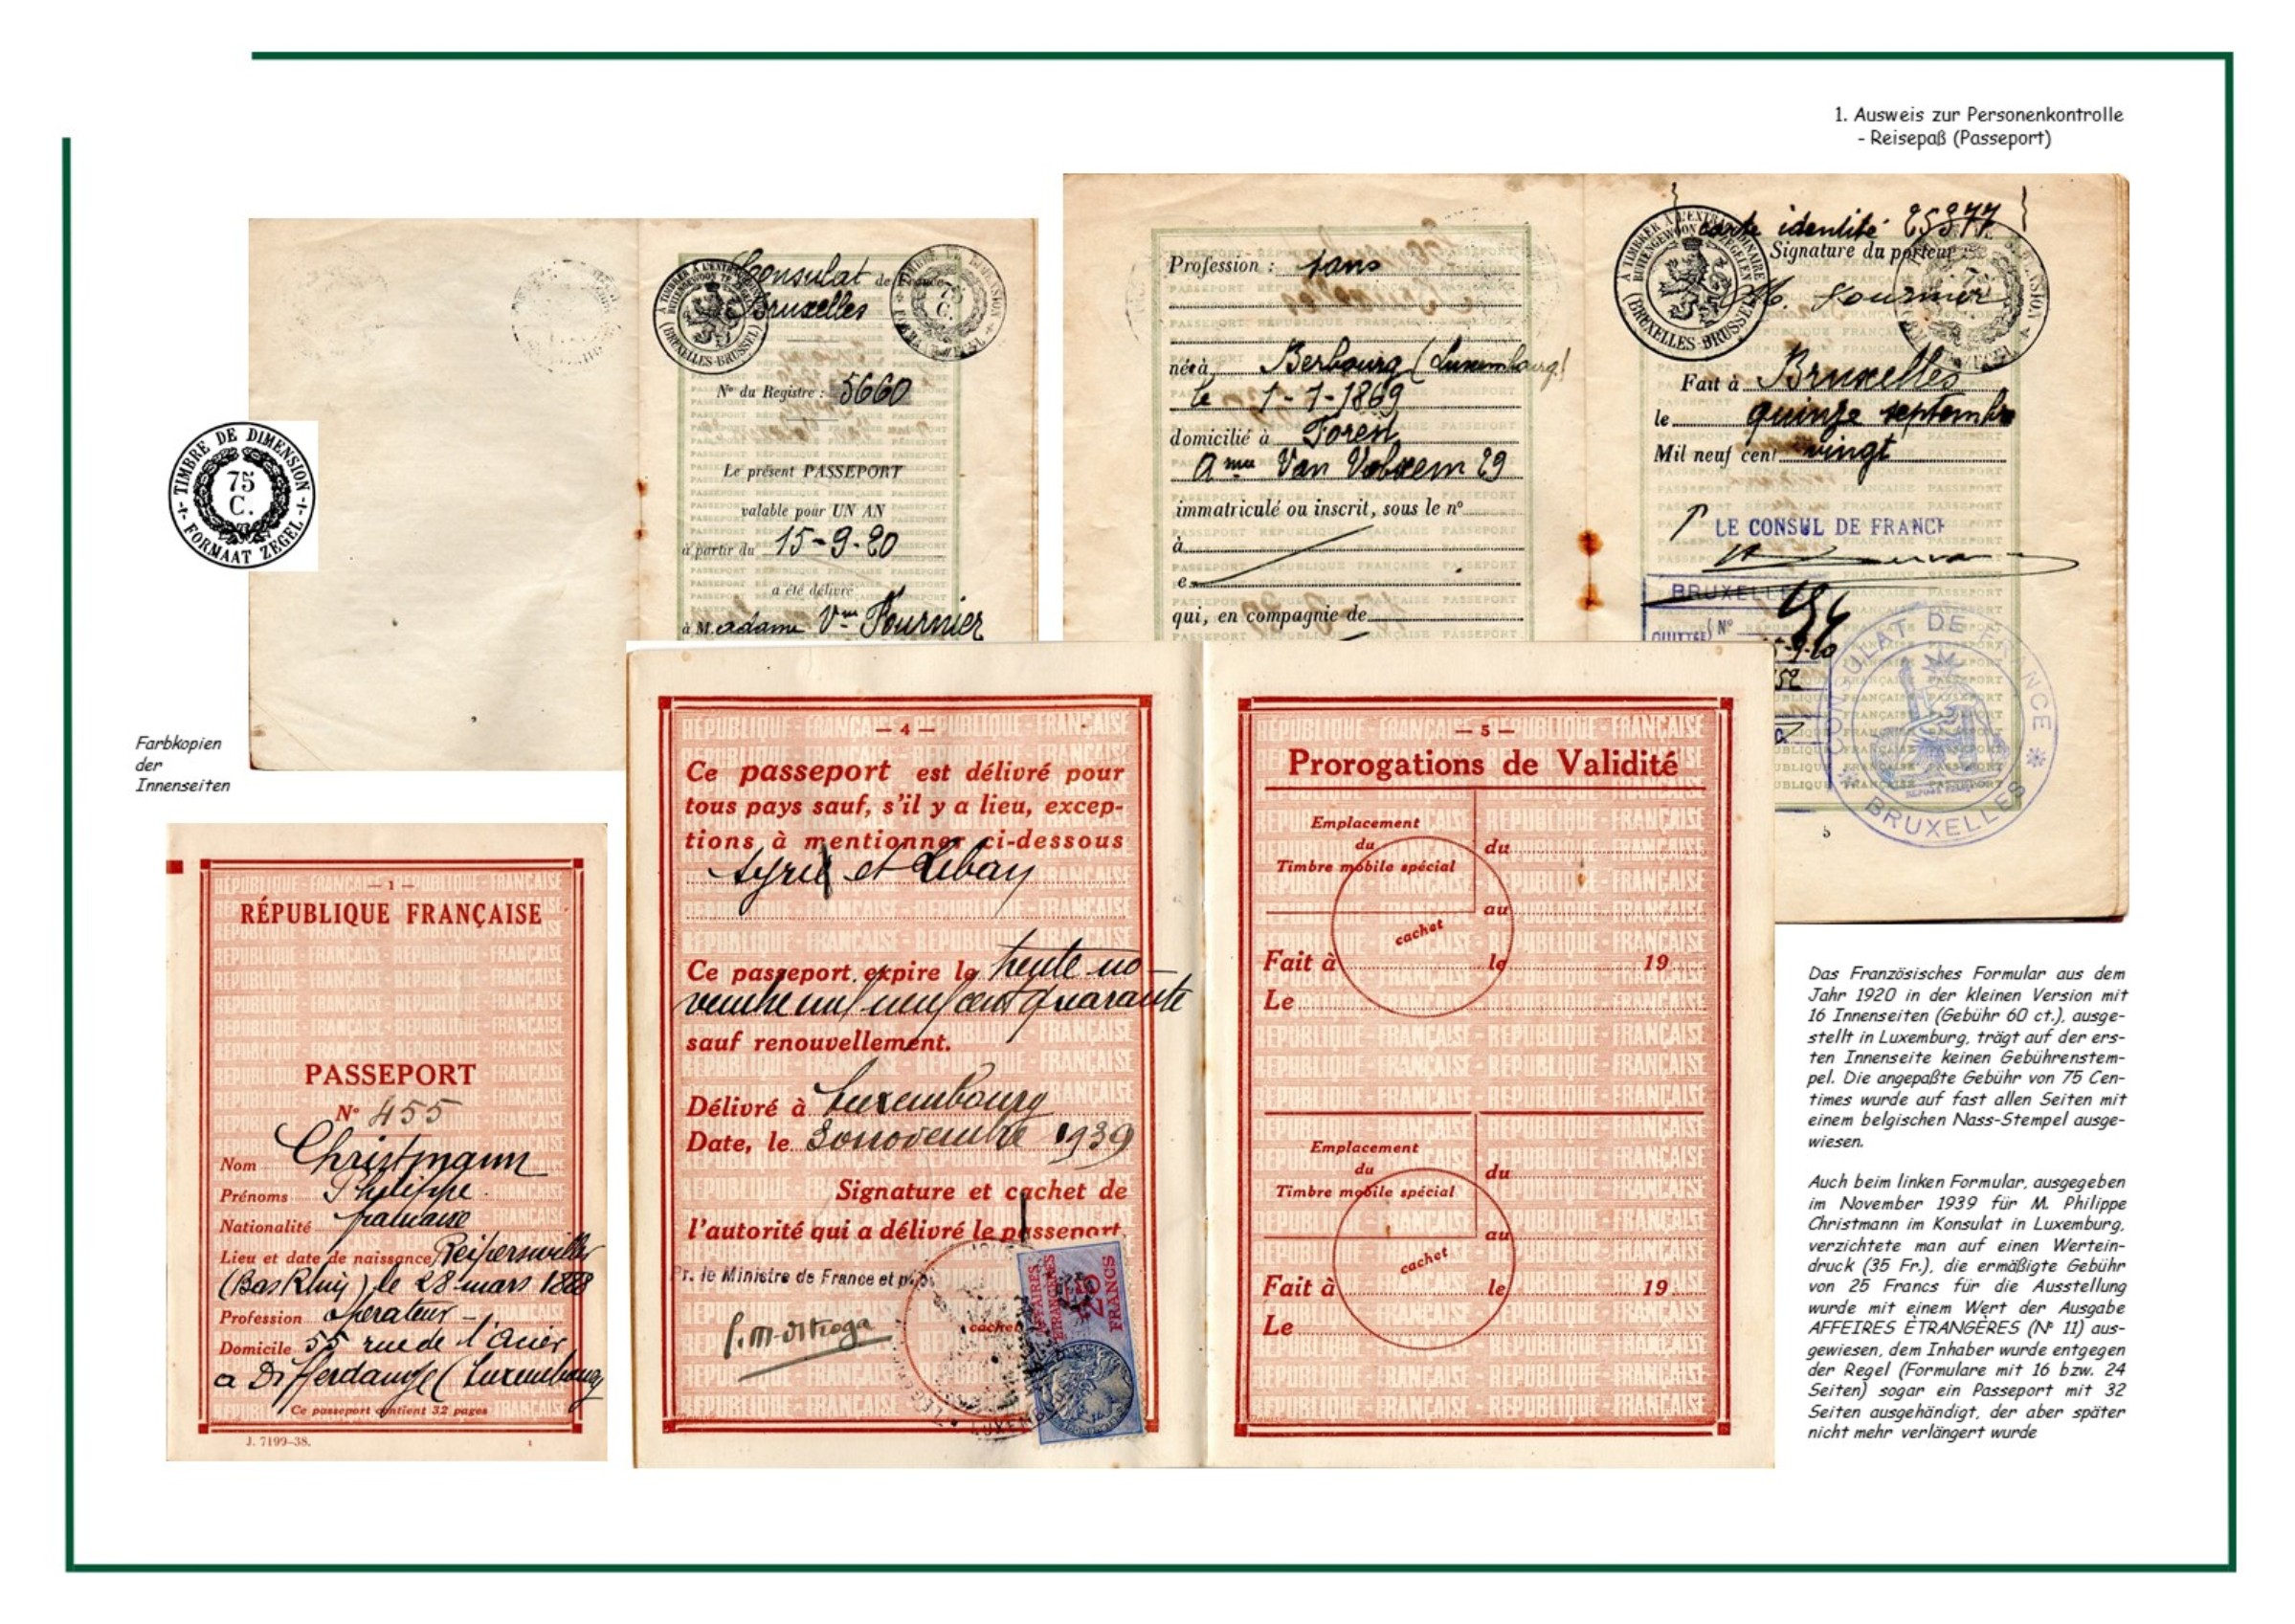 1. Ausweis zur Personenkontrolle
- Reisepaß (Passeport)
Consulat de France
Bruxelles
À TIMBRER À L'EXTRAORDINAIRE
BUITENGEWOON TE ZEGELEN
(BRUXELLES-BRUSSEL)
TIMBRE DE DIMENSION
75
C.
FORMAAT ZEGEL
Nº du Registre : 5660
Le présent PASSEPORT
valable pour UN AN
à partir du 15-9-20
a été délivré
à Madame Vve Fournier
TIMBRE DE DIMENSION
75
C.
FORMAAT ZEGEL
Profession : sans
né à Berbourg (Luxembourg)
le 1-7-1869
domicilié à Forest
Van Volxem 29
immatriculé ou inscrit, sous le nº
à
e
qui, en compagnie de
carte identité 25377
Signature du porteur
À TIMBRER À L'EXTRAORDINAIRE
BUITENGEWOON TE ZEGELEN
(BRUXELLES-BRUSSEL)
Fournier
Fait à Bruxelles
le quinze septembre
Mil neuf cent vingt
LE CONSUL DE FRANCE
BRUXELLES
Nº
CONSULAT DE FRANCE
BRUXELLES
5
Farbkopien
der
Innenseiten
— 1 —
RÉPUBLIQUE FRANÇAISE
PASSEPORT
Nº 455
Nom Christmann
Prénoms Philippe
Nationalité française
Lieu et date de naissance Reipersviller
(Bas Rhin) le 28 mars 1888
Profession Opérateur
Domicile 55 rue de l'Acier
à Differdange (Luxembourg)
Ce passeport contient 32 pages
J. 7199-38.
1
— 4 —
Ce passeport est délivré pour
tous pays sauf, s'il y a lieu, excep-
tions à mentionner ci-dessous
Syrie et Liban
Ce passeport expire le trente no-
vembre mil neuf cent quarante
sauf renouvellement.
Délivré à Luxembourg
Date, le 30 novembre 1939
Signature et cachet de
l'autorité qui a délivré le passeport
Pr. le Ministre de France et p.o.
cachet
AFFAIRES
ÉTRANGÈRES
25
FRANCS
— 5 —
Prorogations de Validité
Emplacement
du
Timbre mobile spécial
du
au
cachet
Fait à le 19
Le
Emplacement
du
Timbre mobile spécial
du
au
cachet
Fait à le 19
Le
Das Französisches Formular aus dem
Jahr 1920 in der kleinen Version mit
16 Innenseiten (Gebühr 60 ct.), ausge-
stellt in Luxemburg, trägt auf der ers-
ten Innenseite keinen Gebührenstem-
pel. Die angepaßte Gebühr von 75 Cen-
times wurde auf fast allen Seiten mit
einem belgischen Nass-Stempel ausge-
wiesen.
Auch beim linken Formular, ausgegeben
im November 1939 für M. Philippe
Christmann im Konsulat in Luxemburg,
verzichtete man auf einen Wertein-
druck (35 Fr.), die ermäßigte Gebühr
von 25 Francs für die Ausstellung
wurde mit einem Wert der Ausgabe
AFFEIRES ÈTRANGÈRES (Nº 11) aus-
gewiesen, dem Inhaber wurde entgegen
der Regel (Formulare mit 16 bzw. 24
Seiten) sogar ein Passeport mit 32
Seiten ausgehändigt, der aber später
nicht mehr verlängert wurde